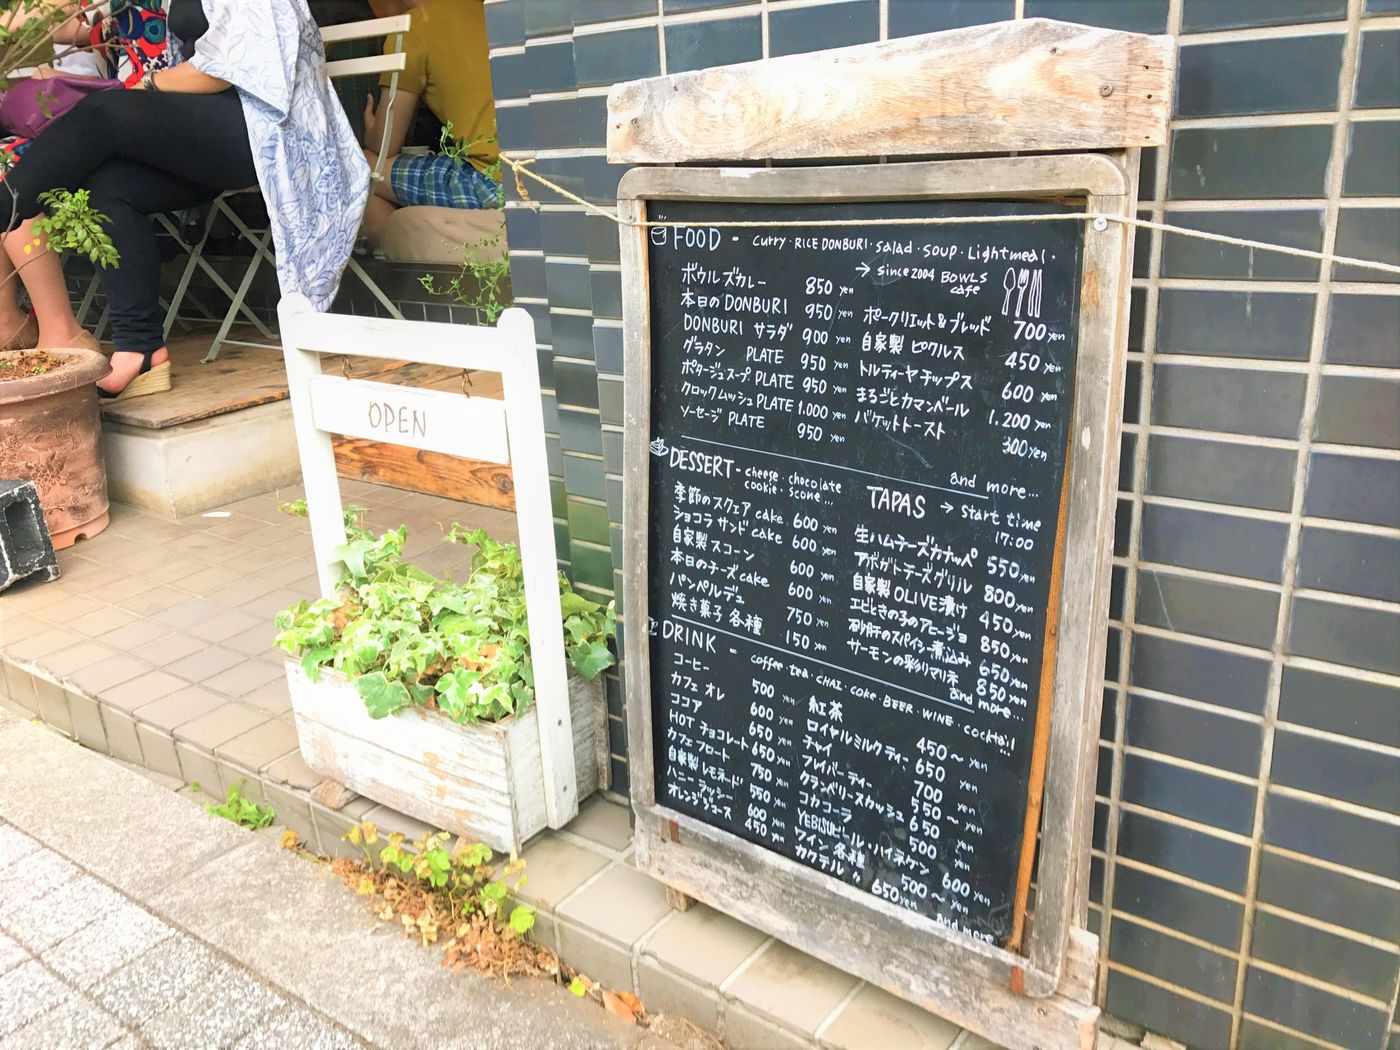 OPEN
FOOD - curry・RICE DONBURI・salad・soup・Lightmeal・
→ since 2004 BOWLS
cafe
ボウルズカレー 850 yen
本日のDONBURI 950 yen
DONBURI サラダ 900 yen
グラタン PLATE 950 yen
ポタージュスープPLATE 950 yen
クロックムッシュPLATE 1.000 yen
ソーセージ PLATE 950 yen
ポークリエット&ブレッド 700 yen
自家製 ピクルス 450 yen
トルティーヤチップス 600 yen
まるごとカマンベール 1.200 yen
バケットトースト 300 yen
and more...
DESSERT - cheese・chocolate
cookie・scone...
季節のスクエア cake 600 yen
ショコラサンド cake 600 yen
自家製スコーン 600 yen
本日のチーズ cake 600 yen
パンペルデュ 750 yen
焼き菓子 各種 150 yen
TAPAS → start time
17:00
生ハムチーズカナッペ 550 yen
アボガトチーズグリル 800 yen
自家製 OLIVE漬け 450 yen
エビときの子のアヒージョ 850 yen
砂肝のスパイシー煮込み 650 yen
サーモンの彩りマリネ 850 yen
and more...
DRINK - coffee・tea・CHAI・coke・BEER・WINE・cocktail...
コーヒー 500 yen
カフェ オレ 600 yen
ココア 650 yen
HOT チョコレート 650 yen
カフェフロート 750 yen
自家製 レモネード 550 yen
ハニーラッシー 600 yen
オレンジジュース 450 yen
紅茶 450〜 yen
ロイヤルミルクティー 650 yen
チャイ 700 yen
フレイバーティー 550〜 yen
クランベリースカッシュ 650 yen
コカコーラ 500 yen
YEBISUビール・ハイネケン 600 yen
ワイン 各種 500〜 yen
カクテル 〃 650 yen
and more